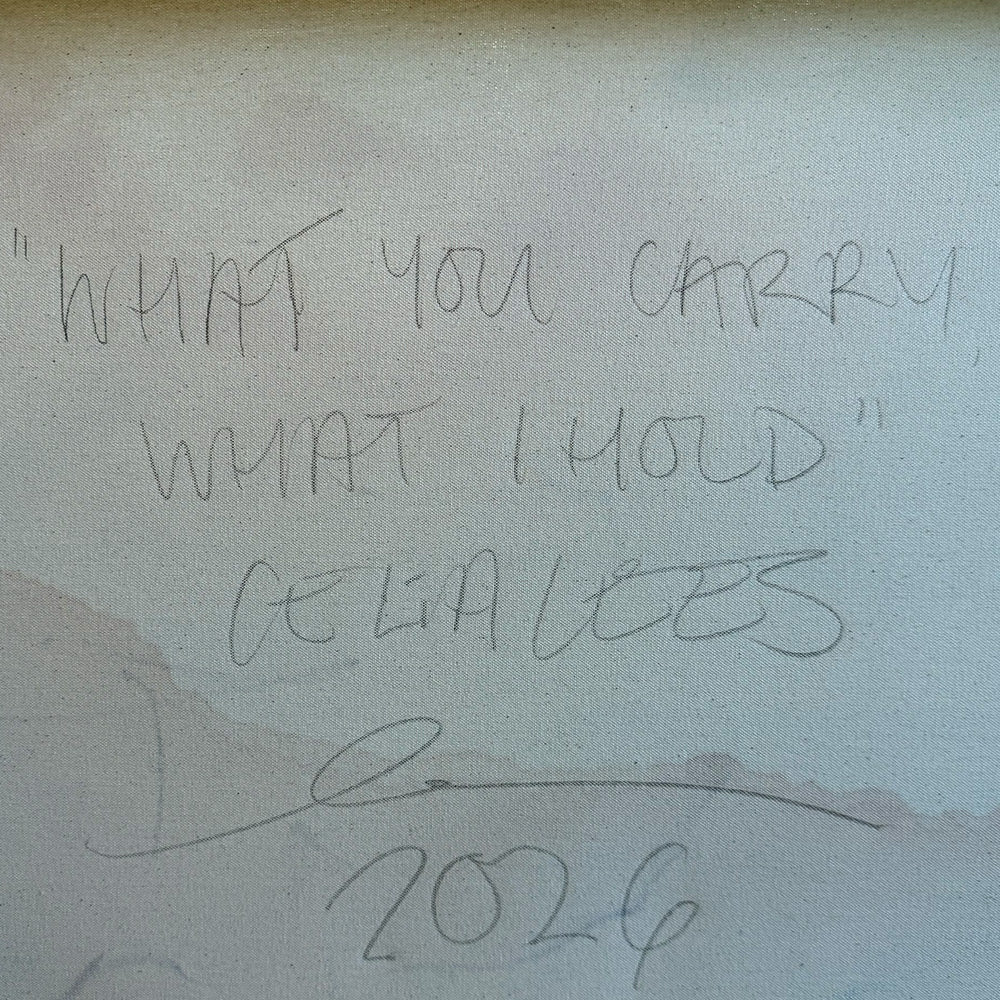 "WHAT YOU CARRY,
WHAT I HOLD"
CELIA LEES
2026